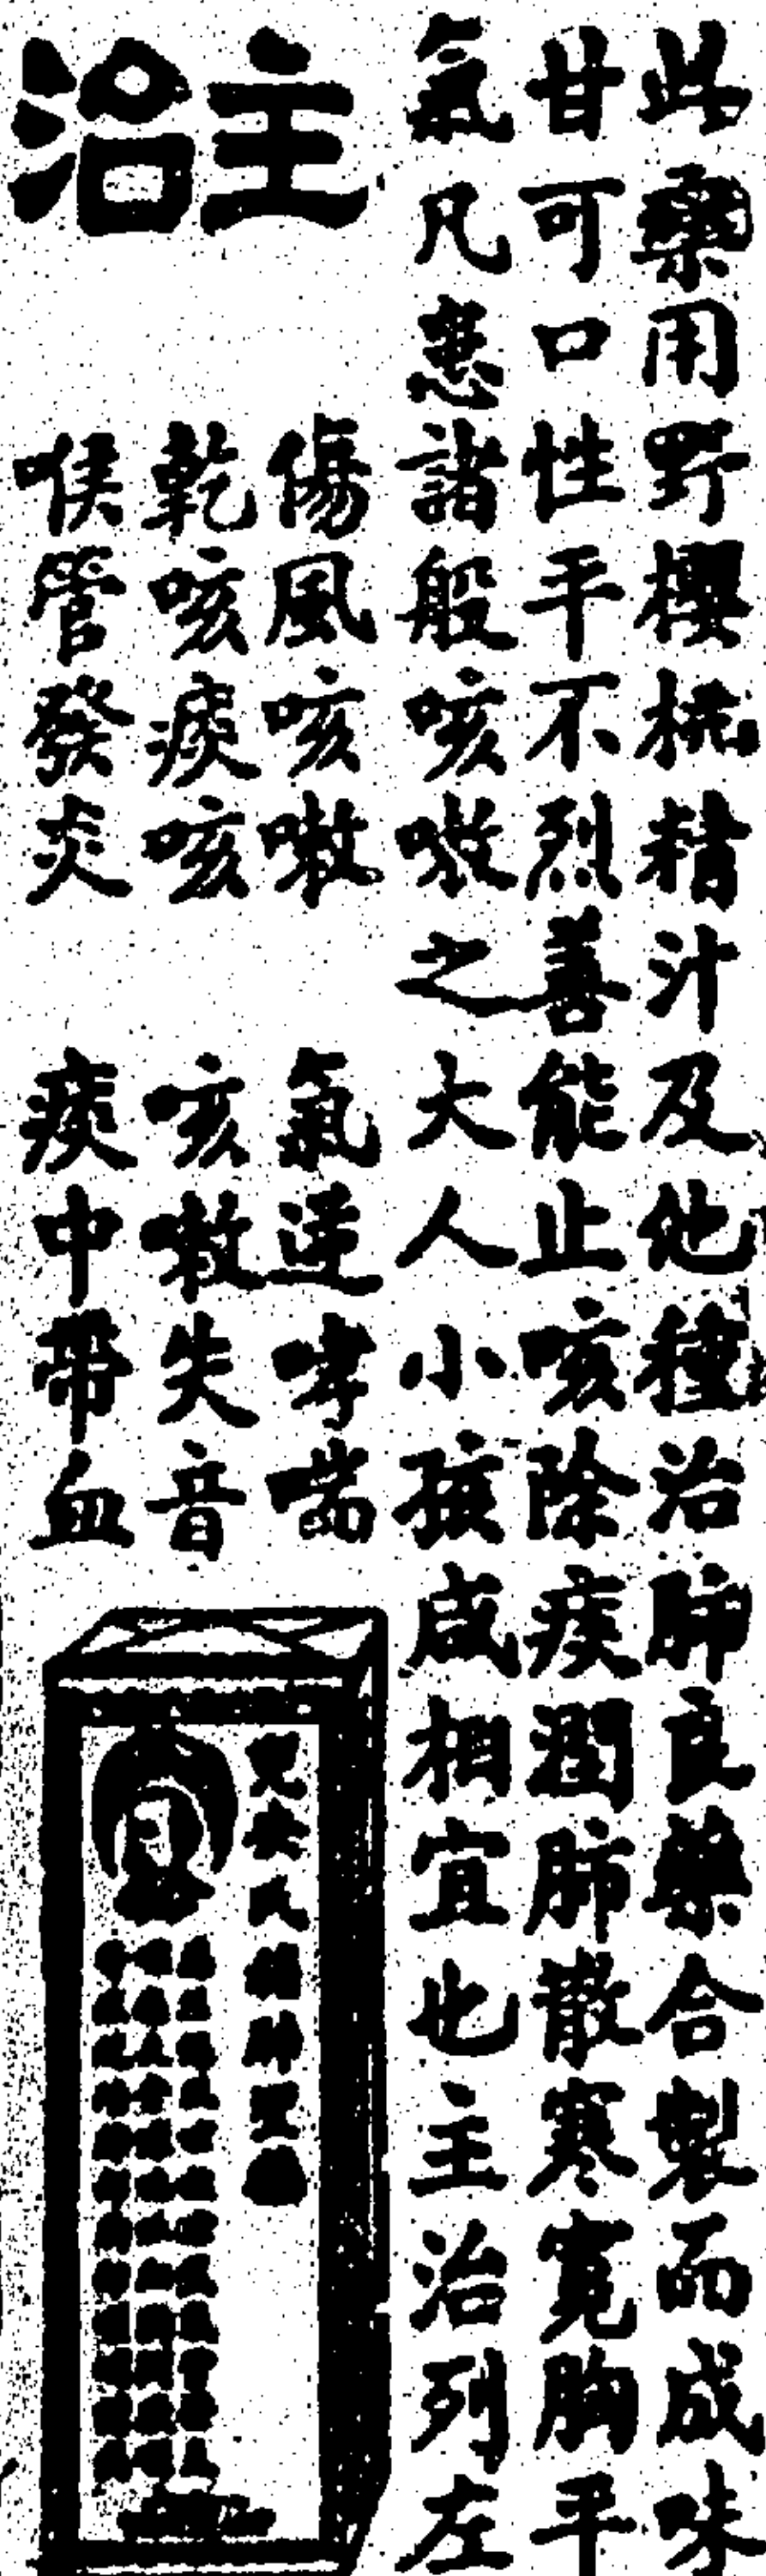 此藥用野櫻桃精汁及他種治肺良藥合製而成味
甘可口性平不烈善能止咳除痰潤肺散寒寬胸平
氣凡患諸般咳嗽之大人小孩咸相宜也主治列左
主治
傷風咳嗽 氣逆哮喘
乾咳痰咳 咳嗽失音
喉管發炎 痰中帶血